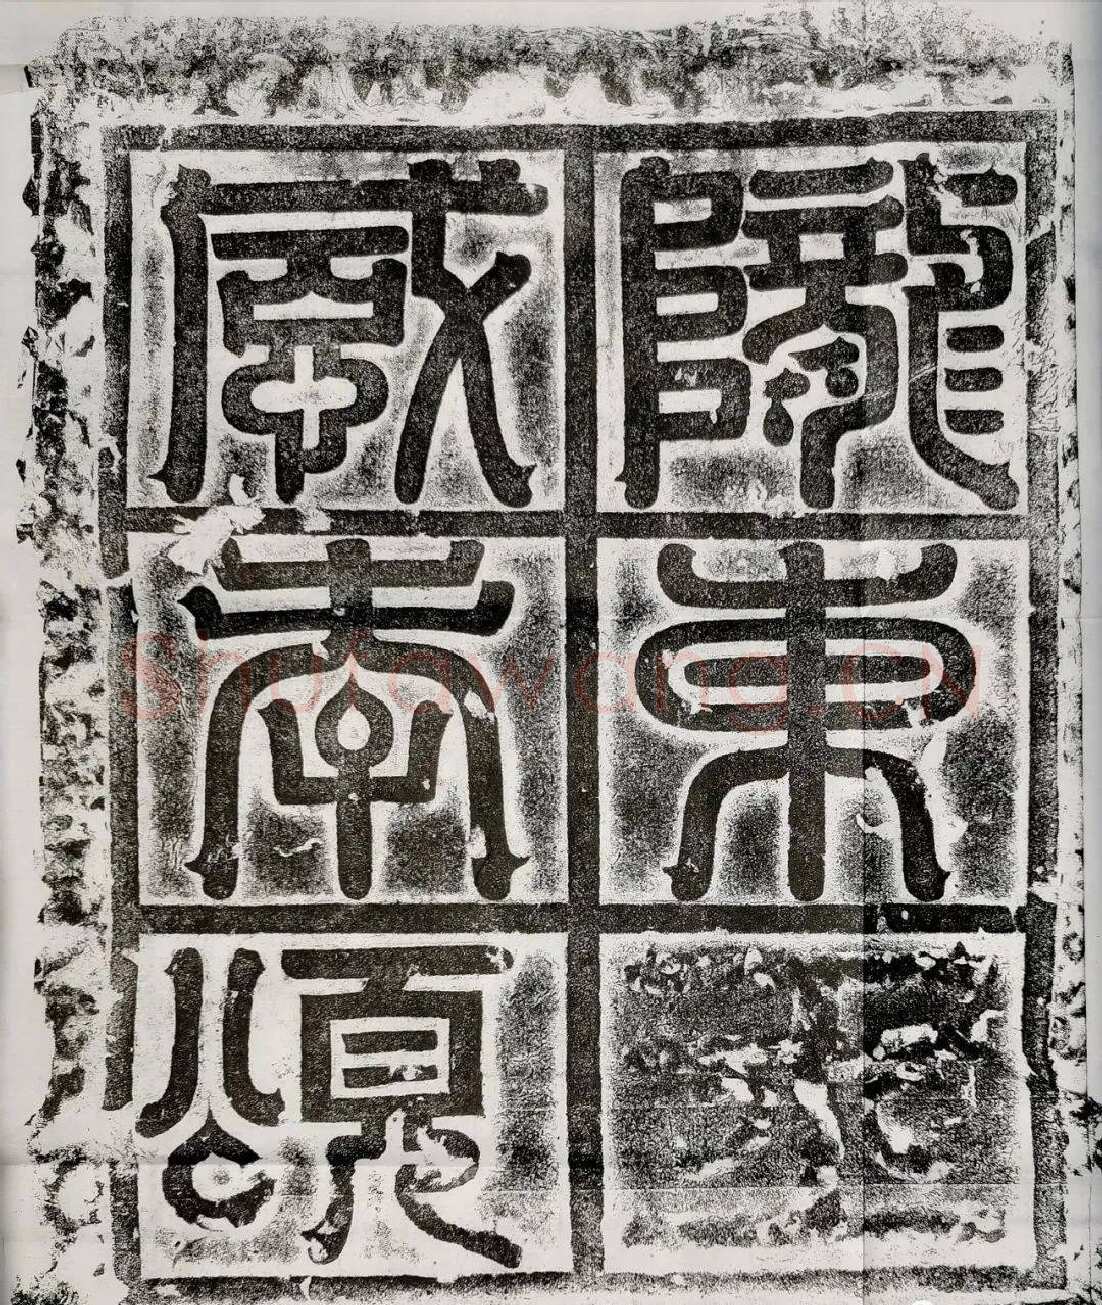 隴東
感孝頌
Shufawang.CN